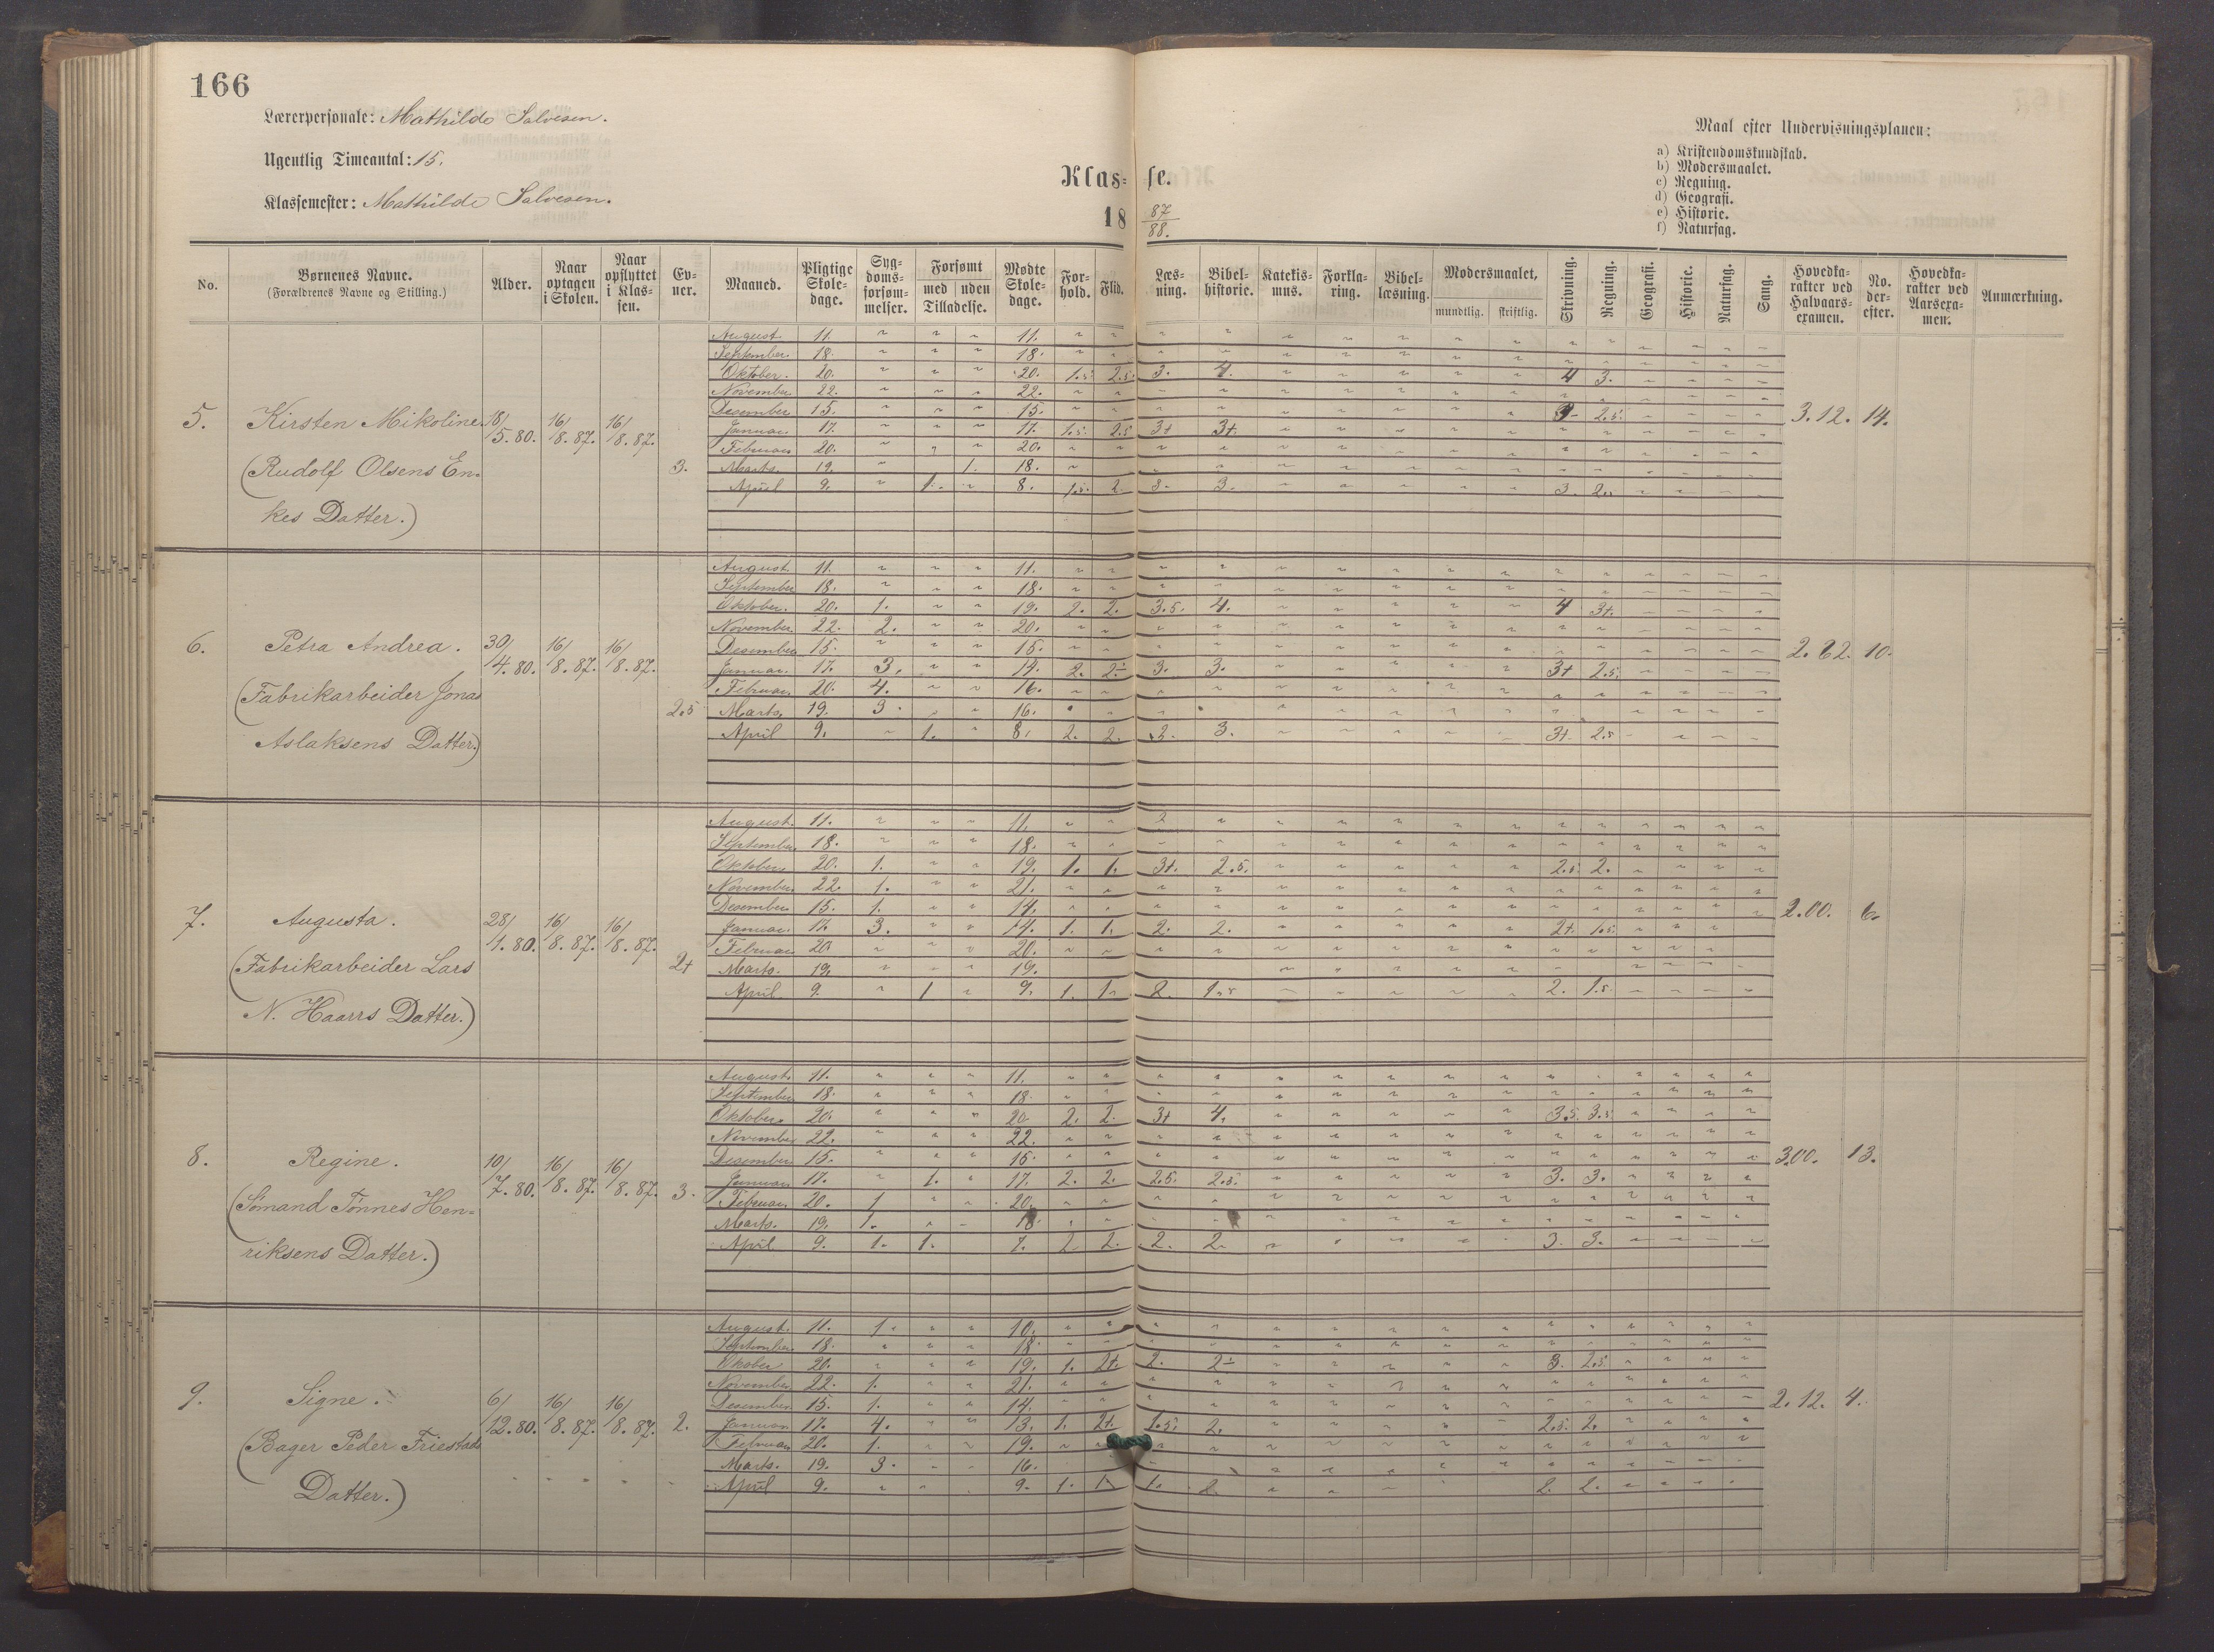 166
Lærerpersonale: Mathilde Salvesen.
Ugentlig Timeantal: 15.
Klassemester: Mathilde Salvesen.
Klasse.
18 87/88.
Maal efter Undervisningsplanen:
a) Kristendomskundskab.
b) Modersmaalet.
c) Regning.
d) Geografi.
e) Historie.
f) Naturfag.
No. | Børnenes Navne. (Forældrenes Navne og Stilling.) | Alder. | Naar optagen i Skolen. | Naar opflyttet i Klassen. | Evner. | Maaned. | Pligtige Skoledage. | Sygdomsforsømmelser. | Forsømt med | uden Tilladelse. | Mødte Skoledage. | Forhold. | Flid. | Læsning. | Bibelhistorie. | Katekismus. | Forklaring. | Bibellæsning. | Modersmaalet, mundtlig. | skriftlig. | Skrivning. | Regning. | Geografi. | Historie. | Naturfag. | Sang. | Hovedkarakter ved Halvaarsexamen. | No. derefter. | Hovedkarakter ved Aarsexamen. | Anmærkning.
5. Kirsten Mikoline. 18/5.80. 16/8.87. 16/8.87. 3. 3.12. 14.
(Rudolf Olsens Enkes Datter.)
August 11. 11.
September 18. 18.
Oktober. 20. 20. 1.5. 2.5. 3. 4. 4 3.
November 22. 22.
Desember 15. 15. 2.5.
Januar. 17. 17. 1.5. 2.5 3+ 3+.
Februar 20. 20.
Marts. 19. 1. 18.
April 9. 1. 8. 1.5. 2 3. 3. 3.
6. Petra Andrea. 30/4.80. 16/8.87. 16/8.87. 2.5 2.62. 10.
(Fabrikarbeider Jonas Aslaksens Datter.)
August. 11. 11.
September 18. 18.
Oktober. 20. 1. 19. 2. 2. 3.5. 4. 4 3+.
November. 22. 2. 20.
Desember 15. 15.
Januar. 17. 3. 14. 2. 3. 3. 3+ 2.5.
Februar. 20. 4. 16.
Marts. 19. 3. 16.
April 9. 1. 8. 2. 2. 3. 3. 3+. 2.5
7. Augusta. 28/1.80. 16/8.87. 16/8.87. 2+ 2.00. 6.
(Fabrikarbeider Lars N. Haarrs Datter.)
August. 11. 11.
September 18. 18.
Oktober 20. 1. 19. 1. 1. 3+. 2.5. 2.5. 2.
November. 22. 1. 21.
Desember 15. 1. 14.
Januar. 17. 3. 14. 1. 1. 2. 2. 2+. 1.5.
Februar 20. 20.
Marts. 19. 19.
April. 9. 1 9. 1. 1. 2. 1.5 2. 1.5.
8. Regine. 10/7.80. 16/8.87. 16/8.87. 3. 3.00. 13.
(Sømand Tønnes Henriksens Datter.)
August. 11. 11.
September 18. 18.
Oktober. 20. 20 2. 2. 3+ 4. 3.5. 3.5
November 22. 22.
Desember 15. 15.
Januar 17. 1. 17. 2. 2. 2.5. 2.5. 3. 3.
Februar. 20. 1 20.
Marts. 19. 1. 18.
April 9. 1. 1. 7. 2 2. 2. 2. 3. 3.
9. Signe. 6/12.80. 16/8.87. 16/8.87. 2. 2.12. 4.
(Bager Peder Friestads Datter.)
August. 11. 1. 10.
September. 18. 18.
Okober 20. 19. 1. 2+. 2. 3. 2.5.
November. 22. 1. 21.
Desember. 15. 1. 14.
Januar 17. 4. 13. 1. 2+. 1.5. 2. 2.5. 2.
Februar 20. 1. 19.
Marts. 19. 3. 16.
April 9. 9. 1. 1. 2. 2. 2.